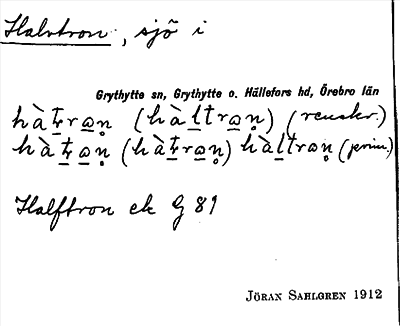 Halvtron, sjö i
Grythytte sn, Grythytte o. Hällefors hd, Örebro län
hàt̲ra̲n̥ (hàl̲tra̲n̥) (renskr.)
hàt̲ra̲n̥ (hàt̲ra̲n̥) hàl̲tra̲n̥ (prim.)
Halftron ek G 81
JÖRAN SAHLGREN 1912